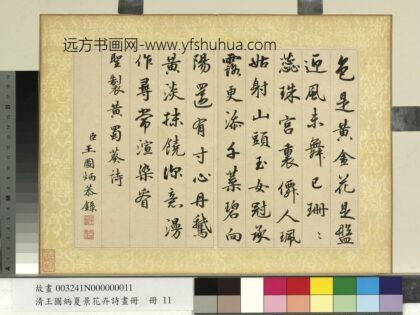 远方书画网-www.yfshuhua.com
色是黃金花是盤
迎風未舞已珊〻
蕊珠宮裏儕人珮
姑射山頭玉女冠承
露更添千葉碧向
陽還有寸心丹鵞
黃淡抹饒伱意漫
作尋常渲染看
聖製黃蜀葵詩
臣王圖炳恭錄
故畫 003241N000000011
清王圖炳夏景花卉詩畫冊 冊 11